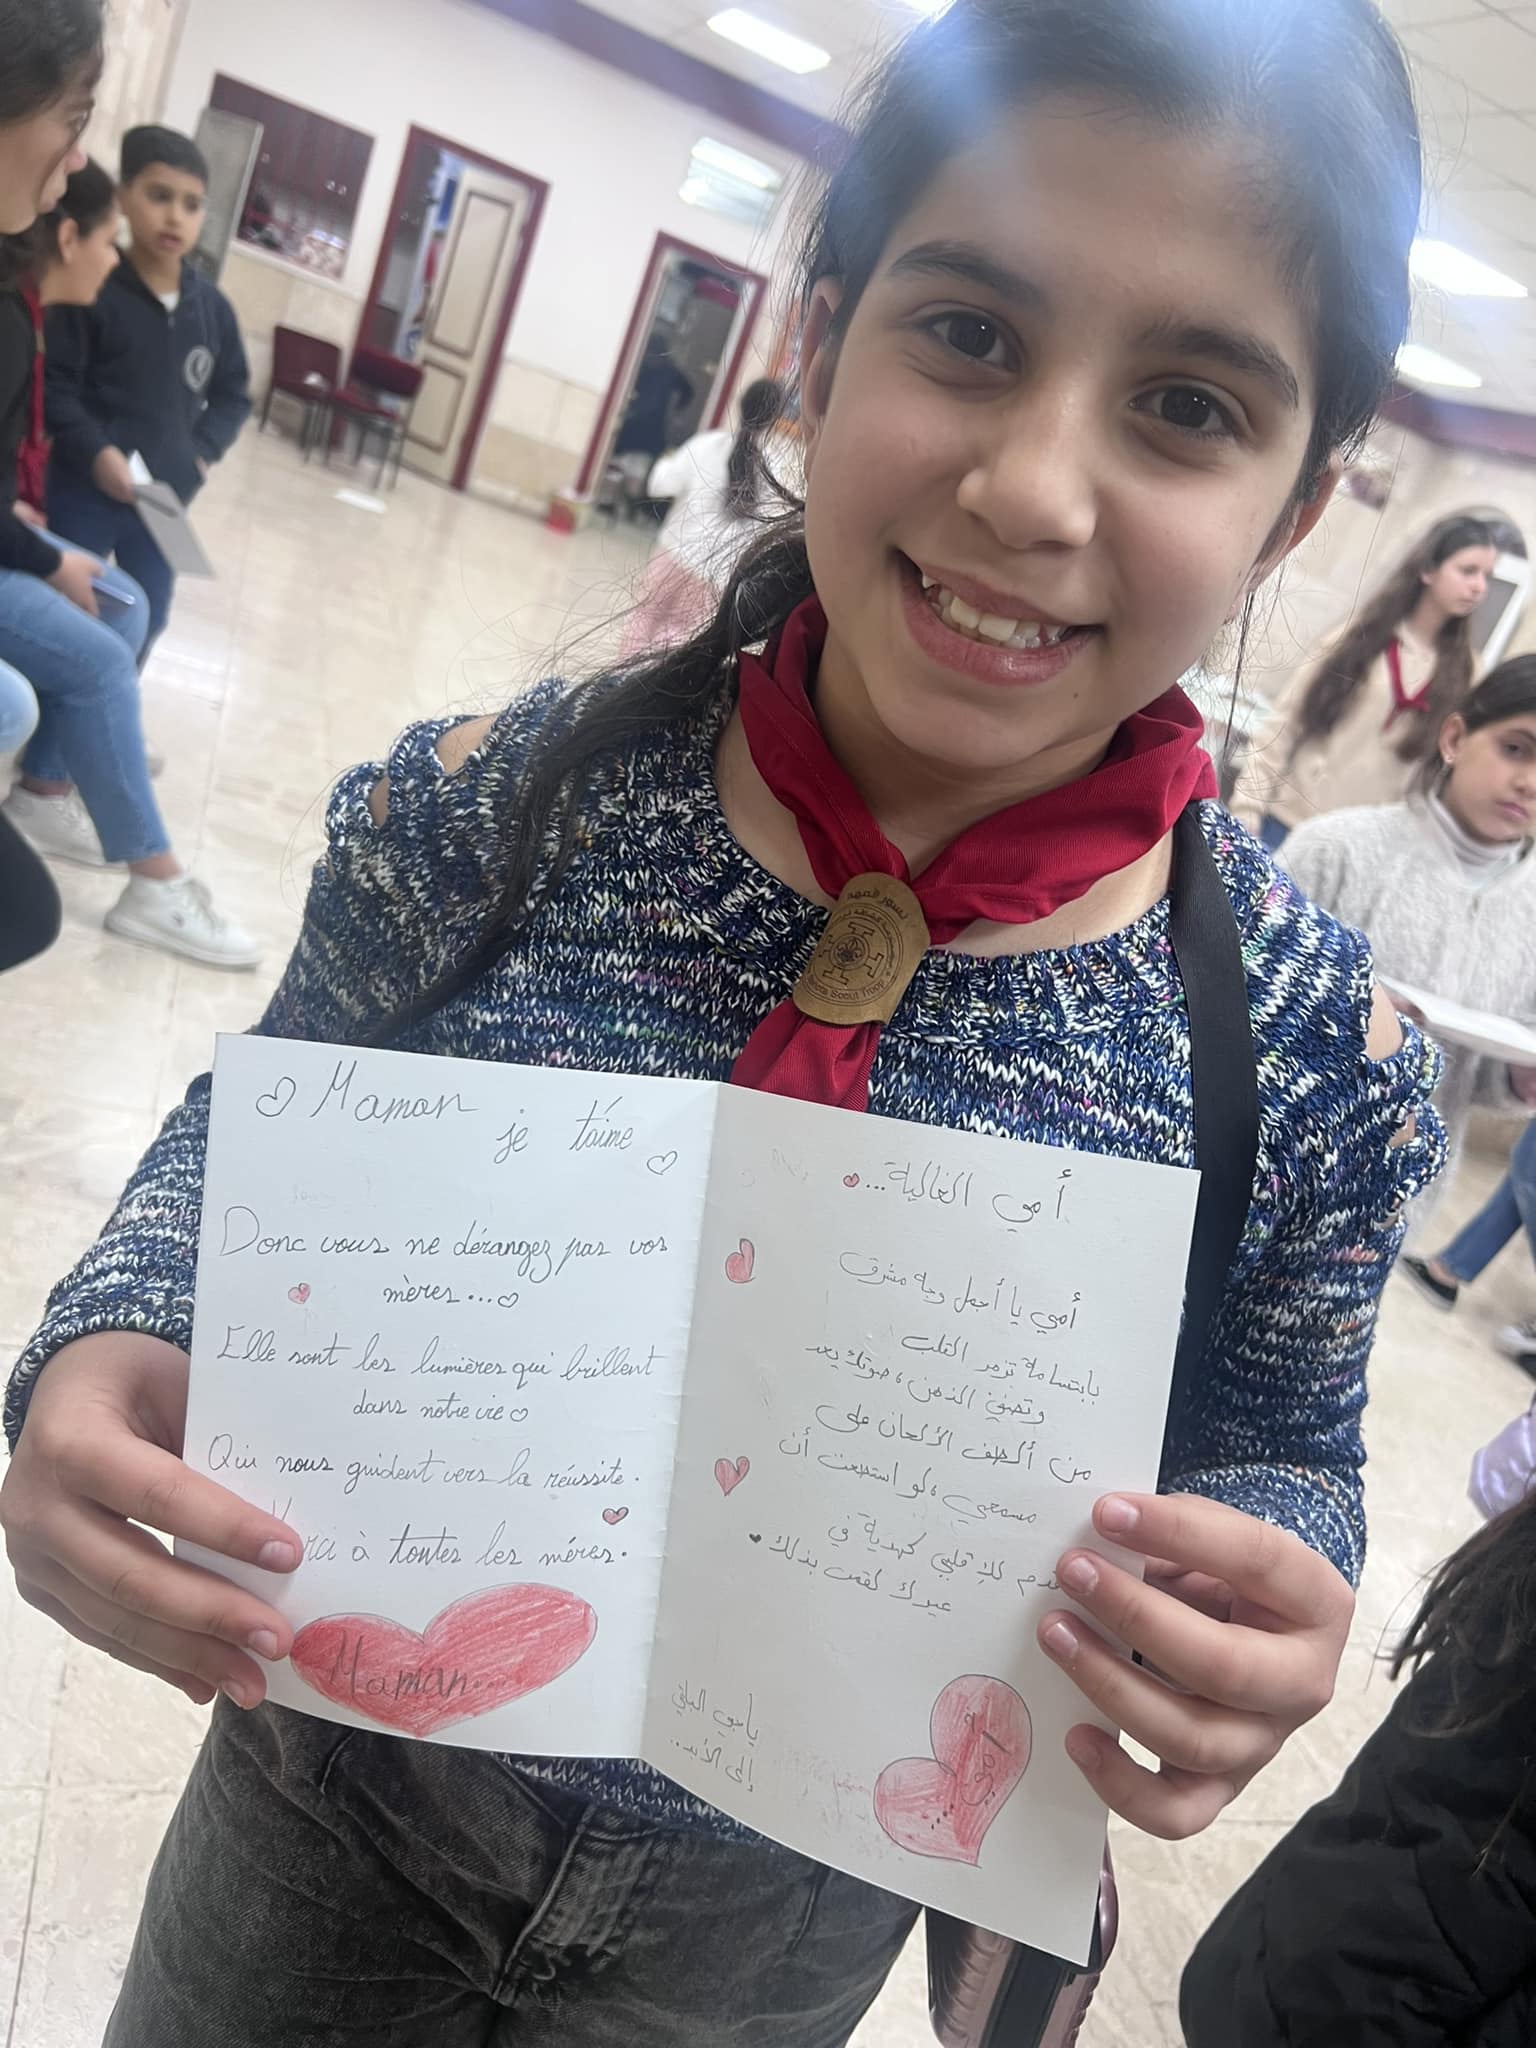 Maman
je t'aime
Donc vous ne dérangez pas vos
mères...
Elle sont les lumières qui brillent
dans notre vie
Qui nous guident vers la réussite.
à toutes les mères.
Maman...
أمي الغالية...
أمي يا أجمل وجه مشرق
بابتسامة تزهر القلب
وتصفي الذهن، صوتك يعد
من ألطف الألحان على
مسمعي، لو استطعت أن
للِ قلبي كهدية في
عيدك لقمت بذلك
إلى الأبد..
نسور
Scout Troop